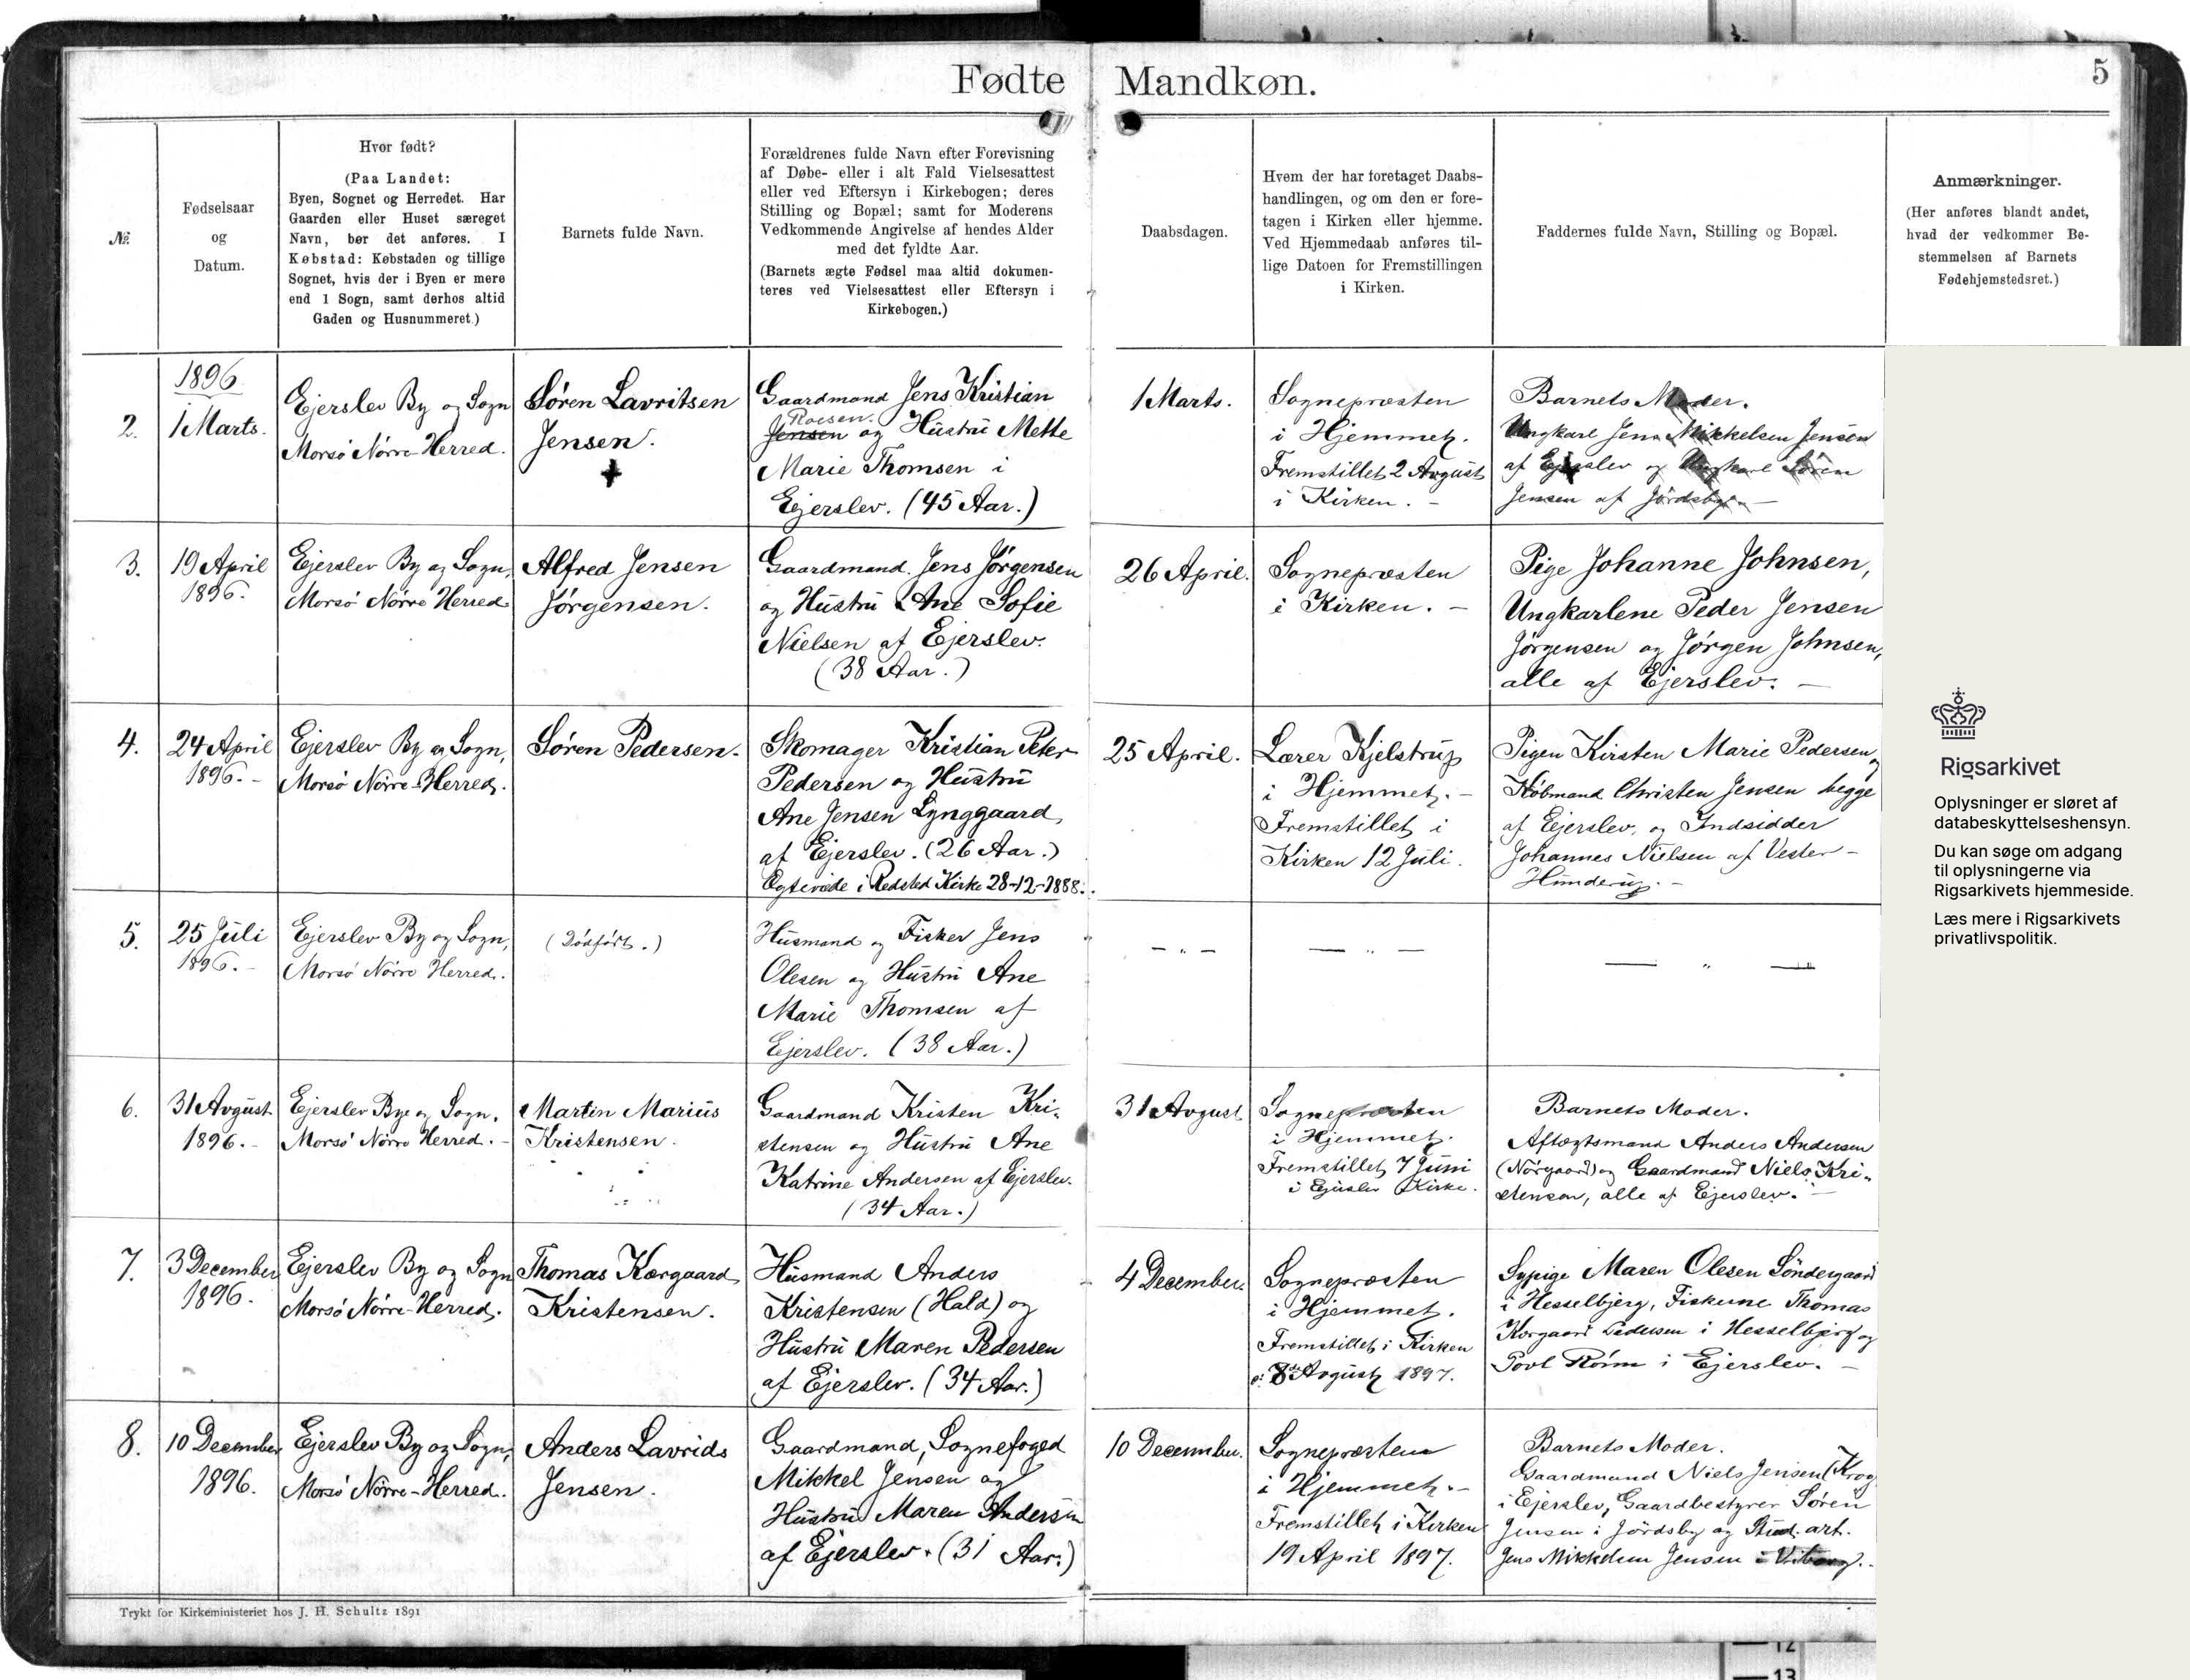 Fødte Mandkøn.
5
№
Fødselsaar
og
Datum.
Hvor født?
(Paa Landet:
Byen, Sognet og Herredet. Har
Gaarden eller Huset særeget
Navn, bør det anføres. I
Købstad: Købstaden og tillige
Sognet, hvis der i Byen er mere
end 1 Sogn, samt derhos altid
Gaden og Husnummeret.)
Barnets fulde Navn.
Forældrenes fulde Navn efter Forevisning
af Døbe- eller i alt Fald Vielsesattest
eller ved Eftersyn i Kirkebogen; deres
Stilling og Bopæl; samt for Moderens
Vedkommende Angivelse af hendes Alder
med det fyldte Aar.
(Barnets ægte Fødsel maa altid dokumen-
teres ved Vielsesattest eller Eftersyn i
Kirkebogen.)
Daabsdagen.
Hvem der har foretaget Daabs-
handlingen, og om den er fore-
tagen i Kirken eller hjemme.
Ved Hjemmedaab anføres til-
lige Datoen for Fremstillingen
i Kirken.
Faddernes fulde Navn, Stilling og Bopæl.
Anmærkninger.
(Her anføres blandt andet,
hvad der vedkommer Be-
stemmelsen af Barnets
Fødehjemstedsret.)
2.
1896
1 Marts.
Ejerslev By og Sogn
Morsø Nørre Herred.
Søren Lavritsen
Jensen.
Gaardmand Jens Kristian
Roesen.
Jensen og Hustru Mette
Marie Thomsen i
Ejerslev. (45 Aar.)
1 Marts.
Sognepræsten
i Hjemmet.
Fremstillet 2 August
i Kirken. -
Barnets Moder.
Ungkarl Jens Mikkelsen Jensen
af Ejerslev og Ungkarl Søren
Jensen af Jørdsby. -
3.
19 April
1896.
Ejerslev By og Sogn,
Morsø Nørre Herred
Alfred Jensen
Jørgensen.
Gaardmand Jens Jørgensen
og Hustru Ane Sofie
Nielsen af Ejerslev.
(38 Aar.)
26 April.
Sognepræsten
i Kirken. -
Pige Johanne Johnsen,
Ungkarlene Peder Jensen
Jørgensen og Jørgen Johnsen,
alle af Ejerslev. -
4.
24 April
1896. -
Ejerslev By og Sogn,
Morsø Nørre-Herred.
Søren Pedersen.
Skomager Kristian Peter
Pedersen og Hustru
Ane Jensen Lynggaard,
af Ejerslev. (26 Aar.)
Egteviede i Redsted Kirke 28-12-1888.
25 April.
Lærer Kjelstrup
i Hjemmet. -
Fremstillet i
Kirken 12 Juli.
Pigen Kirsten Marie Pedersen og
Købmand Christen Jensen begge
af Ejerslev, og Indsidder
Johannes Nielsen af Vester-
Hunderup. -
5.
25 Juli
1896. -
Ejerslev By og Sogn,
Morsø Nørre Herred.
(Dødført.)
Husmand og Fisker Jens
Olesen og Hustru Ane
Marie Thomsen af
Ejerslev. (38 Aar.)
— " —
— " —
— " —
6.
31 Avgust
1896. -
Ejerslev Bye og Sogn.
Morsø Nørre Herred. -
Martin Marius
Kristensen.
Gaardmand Kristen Kri-
stensen og Hustru Ane
Katrine Andersen af Ejerslev.
(34 Aar.)
31 Avgust
Sognepræsten
i Hjemmet.
Fremstillet 7 Juni
i Ejerslev Kirke.
Barnets Moder.
Aftægtsmand Anders Andersen
(Nørgaard) og Gaardmand Niels Kri-
stensen, alle af Ejerslev. -
7.
3 December
1896.
Ejerslev By og Sogn
Morsø Nørre-Herred.
Thomas Kørgaard
Kristensen.
Husmand Anders
Kristensen (Hald) og
Hustru Maren Pedersen
af Ejerslev. (34 Aar.)
4 December.
Sognepræsten
i Hjemmet.
Fremstillet i Kirken
8de Avgust 1897.
Sypige Maren Olesen Søndergaard
i Hesselbjerg, Fiskerne Thomas
Korgaard Pedersen i Hesselbjerg og
Povl Römm i Ejerslev. -
8.
10 December
1896.
Ejerslev By og Sogn,
Morsø Nørre-Herred.
Anders Lavrids
Jensen.
Gaardmand, Sognefoged
Mikkel Jensen og
Hustru Maren Andersen
af Ejerslev. (31 Aar.)
10 December.
Sognepræsten
i Hjemmet. -
Fremstillet i Kirken
19 April 1897.
Barnets Moder.
Gaardmand Niels Jensen (Krog
i Ejerslev, Gaardbestyrer Søren
Jensen i Jørdsby og Stud. art.
Jens Mikkelsen Jensen i Viborg.
Trykt for Kirkeministeriet hos J. H. Schultz 1891
Rigsarkivet
Oplysninger er sløret af
databeskyttelseshensyn.
Du kan søge om adgang
til oplysningerne via
Rigsarkivets hjemmeside.
Læs mere i Rigsarkivets
privatlivspolitik.
12
13